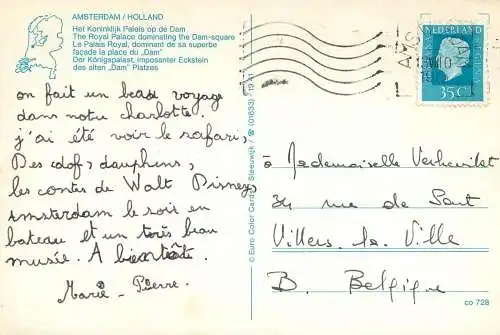 AMSTERDAM / HOLLAND
Het Koninklijk Paleis op de Dam
The Royal Palace dominating the Dam-square
Le Palais Royal, dominant de sa superbe
façade la place du „Dam”
Der Königspalast, imposanter Eckstein
des alten „Dam” Platzes
on fait un beau voyage
dans notre charlotte.
j'ai été voir le safari,
Des dauphins,
les contes de Walt Disney,
Amsterdam le soir en
bateau et un très beau
musée. A bientôt
Marie-Pierre.
© Euro Color Cards Sleeuwijk / ☎ (01833) 1941
AMS
NEDERLAND
35 C
à Mademoiselle
34 rue de
Villers-la-Ville
B. Belgique
co 728